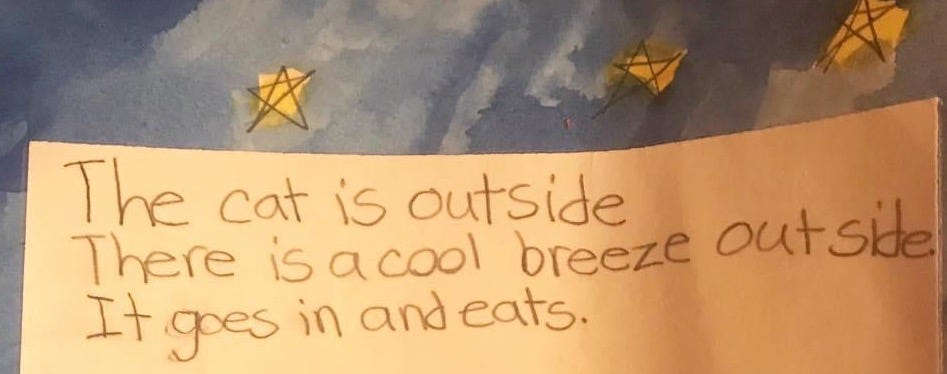 The cat is outside
There is a cool breeze outside.
It goes in and eats.